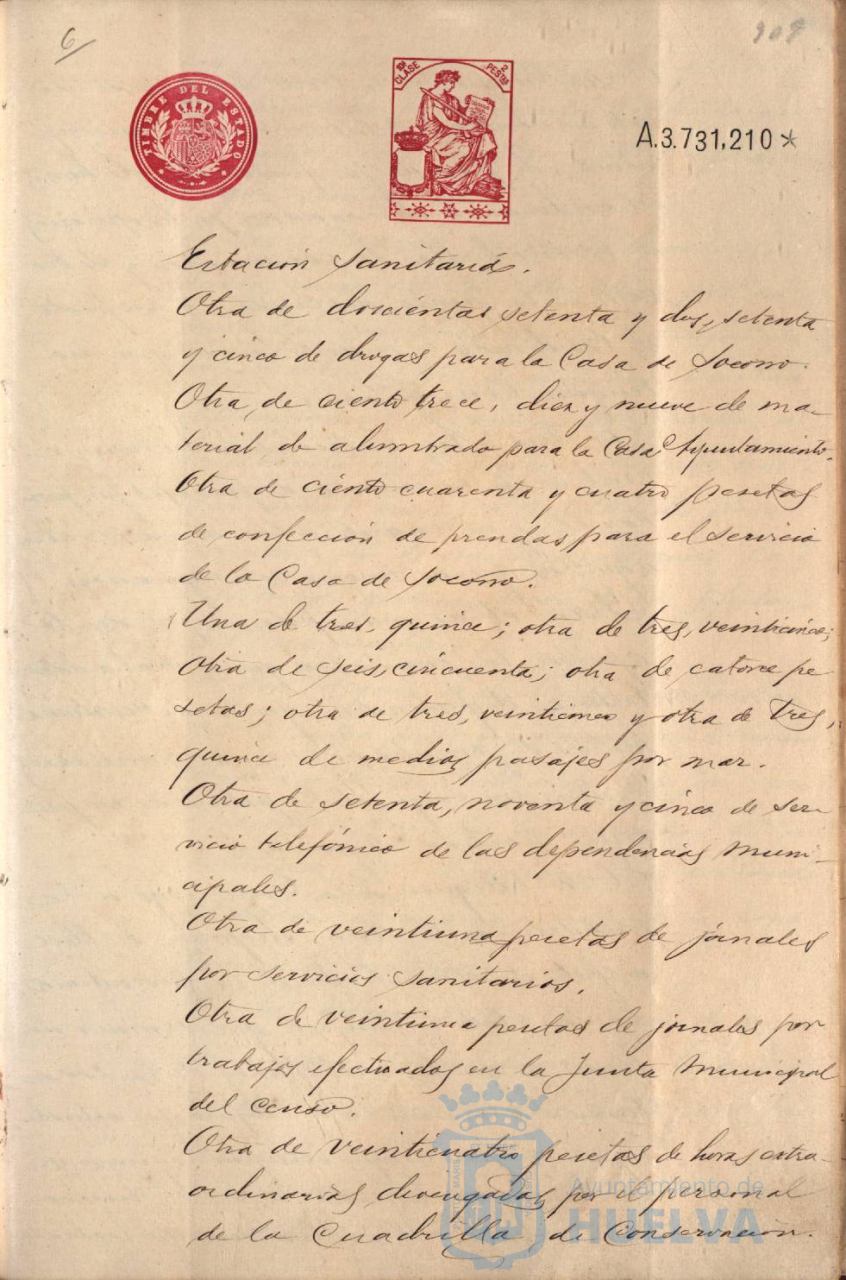 6
908
TIMBRE DEL ESTADO
10ª CLASE 2 PESTAS
A.3.731,210*
Estación Sanitaria.
Otra de doscientas setenta y dos, setenta
y cinco de drogas para la Casa de Socorro.
Otra de ciento trece, diez y nueve de ma-
terial de alumbrado para la Casa Ayuntamiento.
Otra de ciento cuarenta y cuatro pesetas
de confección de prendas para el servicio
de la Casa de Socorro.
Una de tres, quince; otra de tres, veinticinco;
otra de seis, cincuenta; otra de catorce pe-
setas; otra de tres, veinticinco y otra de tres,
quince de medios pasajes por mar.
Otra de setenta, noventa y cinco de ser-
vicio telefónico de las dependencias muni-
cipales.
Otra de veintiuna pesetas de jornales
por servicios sanitarios.
Otra de veintiuna pesetas de jornales por
trabajos efectuados en la Junta Municipal
del Censo.
Otra de veinticuatro pesetas de horas extra-
ordinarias devengadas por el personal
de la Cuadrilla de Conservación.
Ayuntamiento de
HUELVA